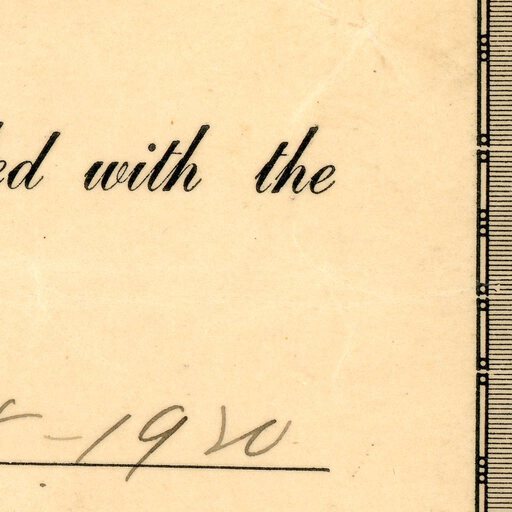 ed with the
- 1920